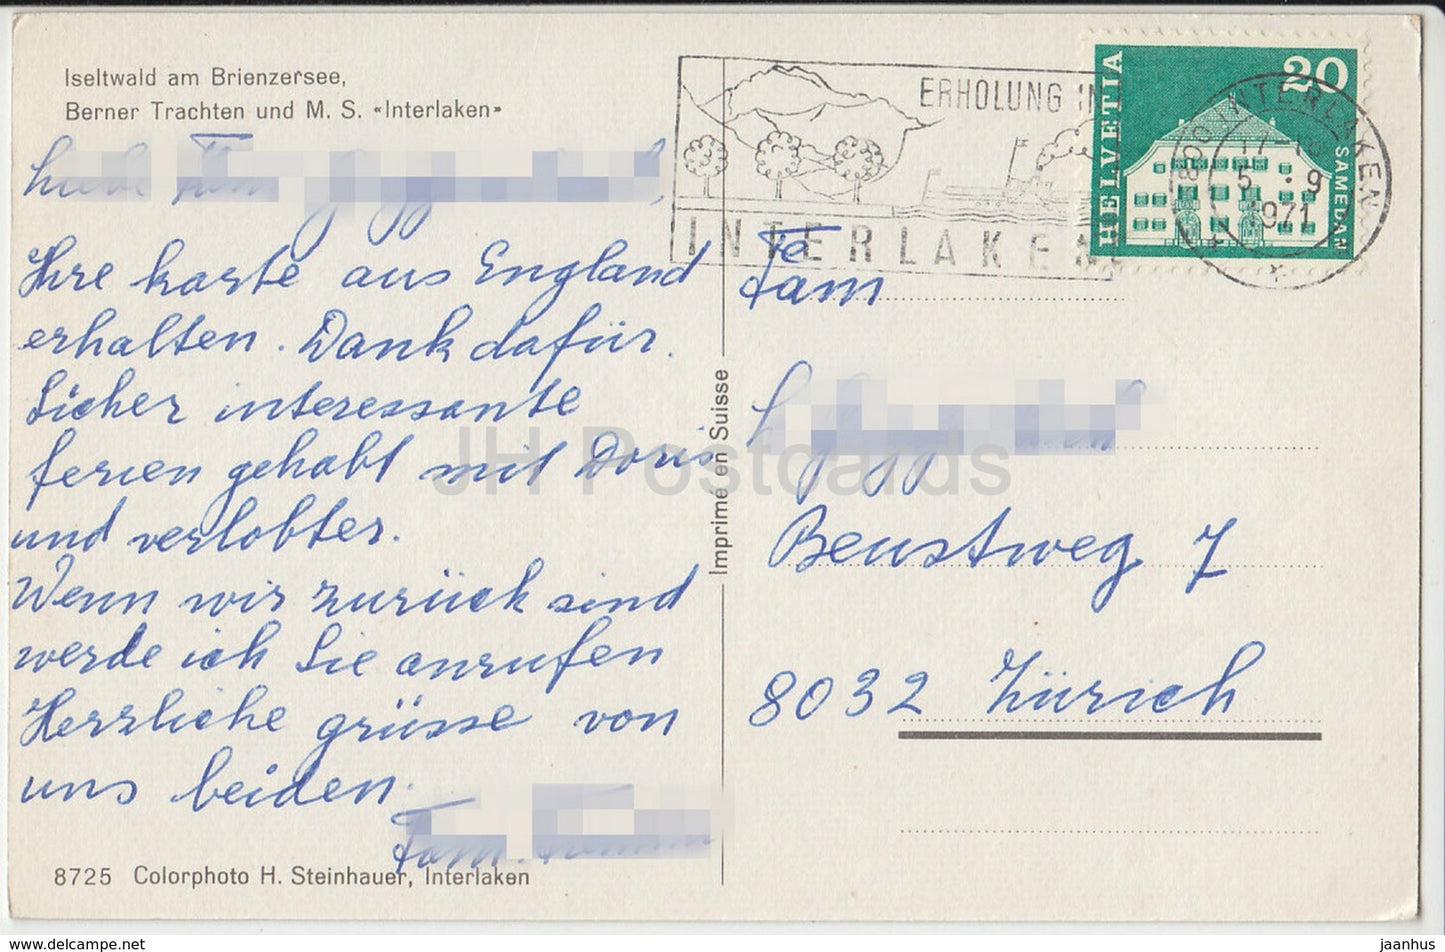 Iseltwald am Brienzersee,
Berner Trachten und M. S. «Interlaken»
Liebe Fam
Ihre karte aus England
erhalten. Dank dafür.
Sicher interessante
ferien gehabt mit Doris
und verlobter.
Wenn wir zurück sind
werde ich Sie anrufen
Herzliche grüsse von
uns beiden.
Fam.
8725 Colorphoto H. Steinhauer, Interlaken
Imprimé en Suisse
ERHOLUNG IN
INTERLAKEN
HELVETIA
20
SAMEDAN
INTERLAKEN
5 . 9
1971
Fam
Beustweg 7
8032 Zürich
JH Postcards
www.delcampe.net
jaanhus